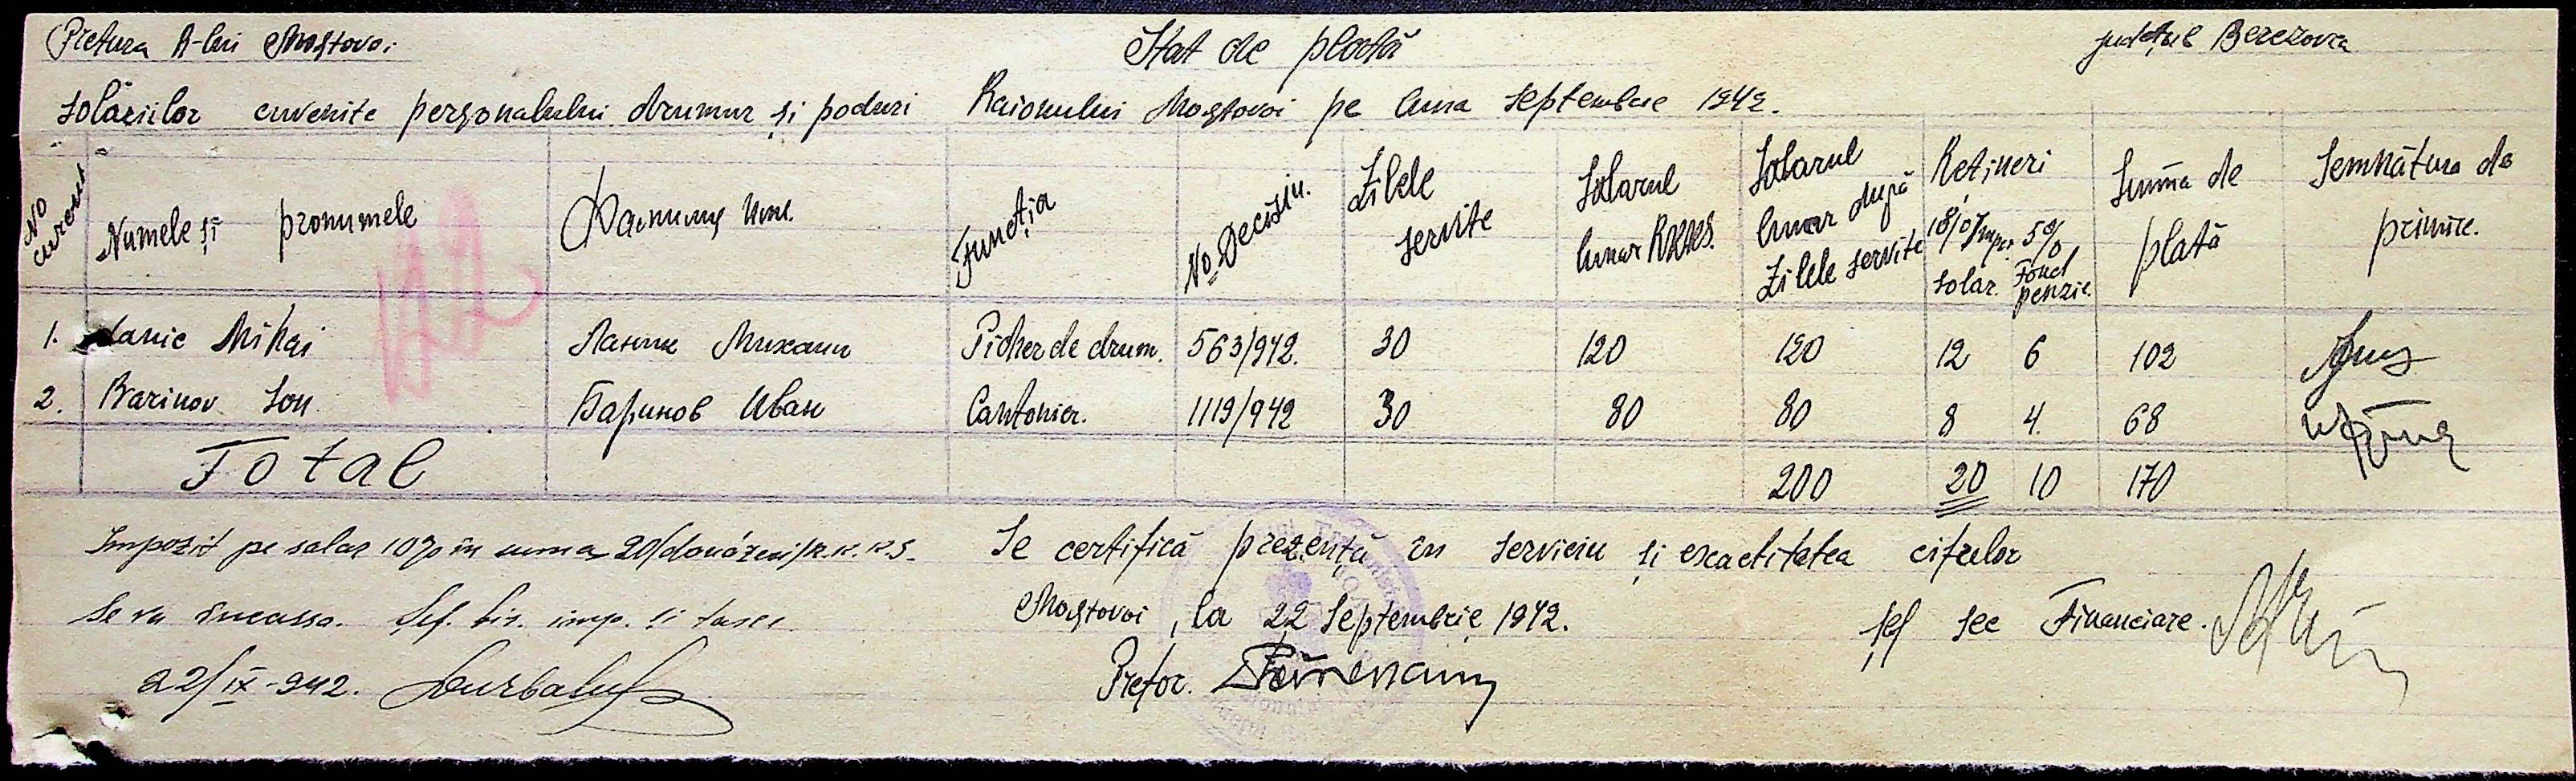 Pretura R-lui Mostovoi
Stat de plată
județul Berezovca
solariilor cuvenite personalului drumur și poduri Raionului Mostovoi pe luna Septembrie 1942.
No curent
Numele și pronumele
Фамилия Имя.
Funcția
No Deciziu.
Zilele servite
Solarul lunar RKKS.
Solarul lunar după Zilele servite
Rețineri
10% Imp. solar.
5% Fond penzie.
Suma de plată
Semnătura de primire.
1. Lanic Mihai Ланик Михаил Picher de drum. 563/942. 30 120 120 12 6 102
2. Barinov Ion Баринов Иван Cantonier. 1119/942 30 80 80 8 4. 68
Total 200 20 10 170
Impozit pe salar 10% în suma 20/douăzeci/R.K.K.S.
se va încassa. Șef. bir. imp. și taxe
22/IX-942.
Se certifică prezența în serviciu și exactitatea cifrelor
Mostovoi, la 22 Septembrie 1942.
Pretor.
șef sec Financiare.